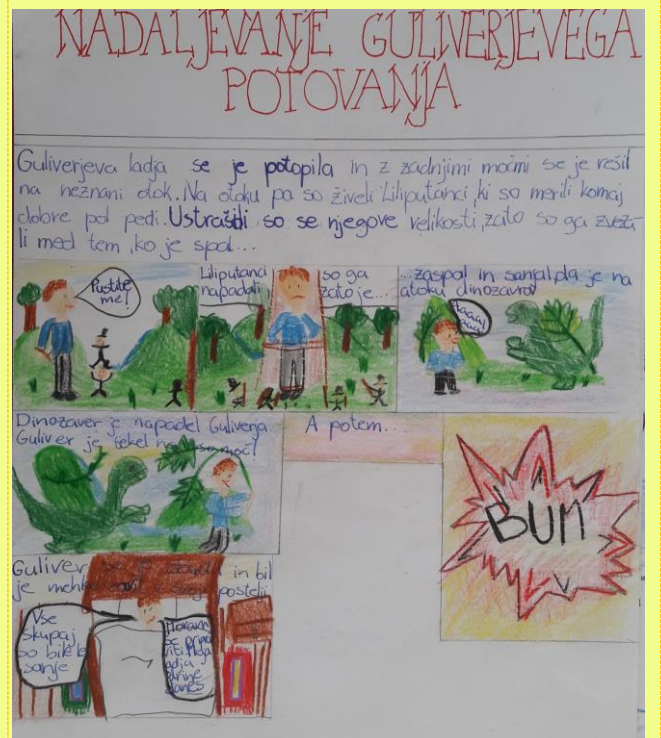 NADALJEVANJE GULIVERJEVEGA
POTOVANJA
Guliverjeva ladja se je potopila in z zadnjimi močmi se je rešil
na neznani otok. Na otoku pa so živeli Liliputanci, ki so merili komaj
dobre pol pedi. Ustrašili so se njegove velikosti, zato so ga zveza-
li med tem, ko je spal...
Pustite
me!
Liliputanci
napadali
so ga
zato je...
...zaspal in sanjal, da je na
otoku dinozavrov
Dinozaver je napadel Guliverja.
Guliver je tekel na vso moč!
A potem...
BUM
Guliver se je in bil
je postelji
Vse
skupaj
so bile le
sanje
Moram
se pripra
viti. Moja
ladja
danes